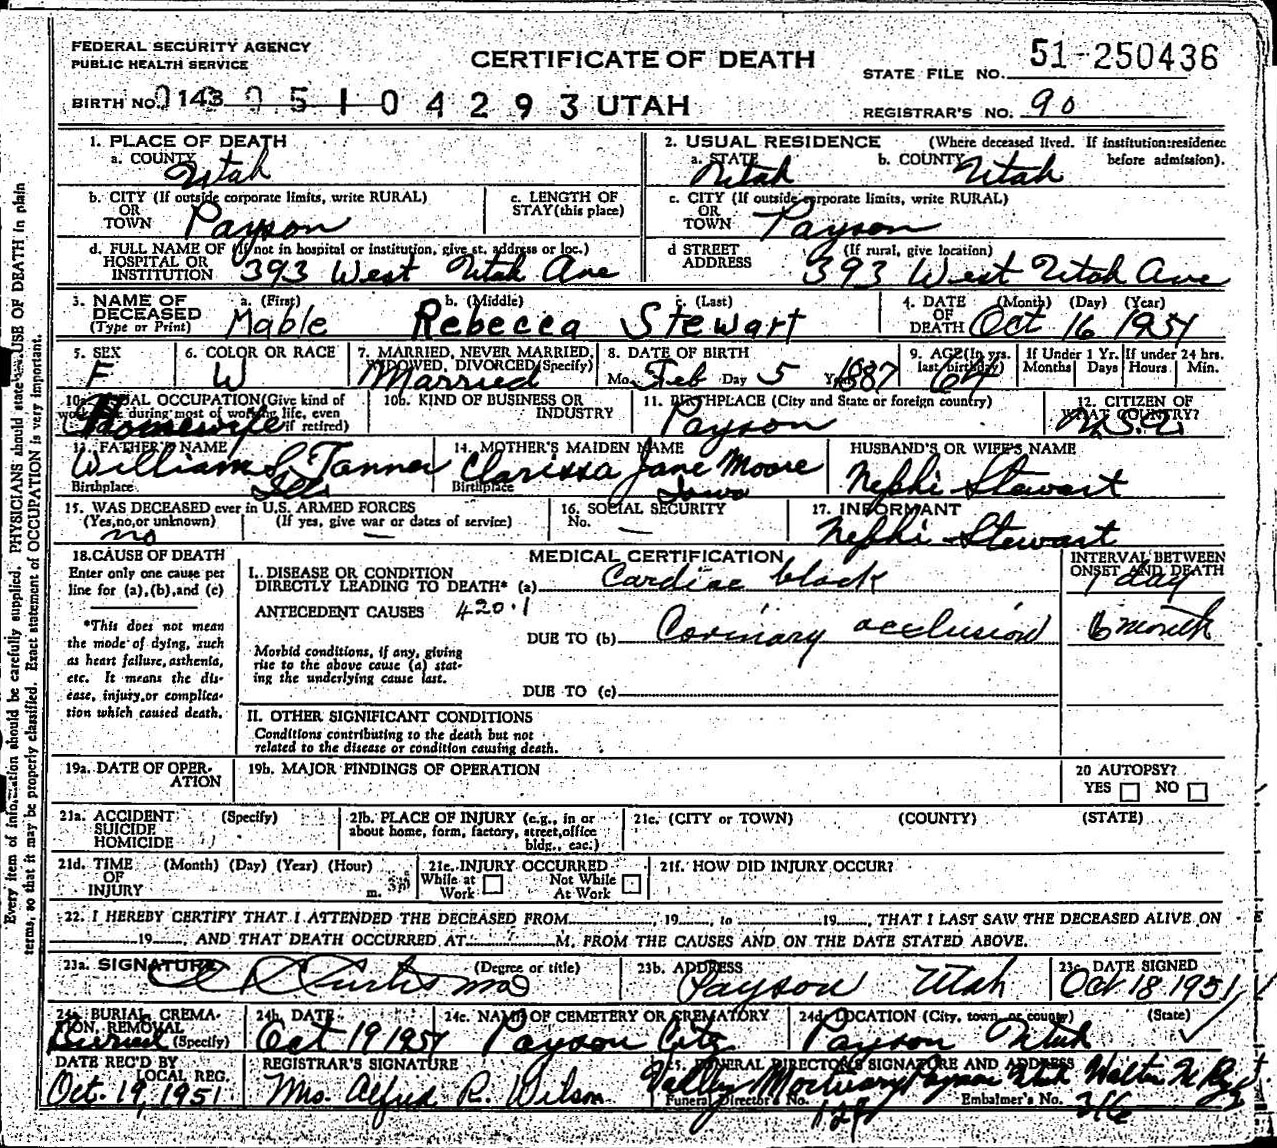 FEDERAL SECURITY AGENCY
PUBLIC HEALTH SERVICE
CERTIFICATE OF DEATH
STATE FILE NO. 51-250436
BIRTH NO. 143 0 5 1 0 4 2 9 3 UTAH
REGISTRAR'S NO. 90
1. PLACE OF DEATH
a. COUNTY Utah
2. USUAL RESIDENCE (Where deceased lived. If institution:residence before admission).
a. STATE Utah b. COUNTY Utah
b. CITY (If outside corporate limits, write RURAL)
OR
TOWN Payson
c. LENGTH OF
STAY (this place)
c. CITY (If outside corporate limits, write RURAL)
OR
TOWN Payson
d. FULL NAME OF (If not in hospital or institution, give st. address or loc.)
HOSPITAL OR
INSTITUTION 393 West Utah Ave
d STREET (If rural, give location)
ADDRESS 393 West Utah Ave
3. NAME OF DECEASED
(Type or Print)
a. (First) b. (Middle) c. (Last)
Mable Rebecca Stewart
4. DATE OF DEATH (Month) (Day) (Year)
Oct 16 1951
5. SEX
F
6. COLOR OR RACE
W
7. MARRIED, NEVER MARRIED,
WIDOWED, DIVORCED (Specify)
Married
8. DATE OF BIRTH
Mo. Feb Day 5 Year 1887
9. AGE (In yrs. last birthday)
64
If Under 1 Yr.
Months Days
If under 24 hrs.
Hours Min.
10a. USUAL OCCUPATION (Give kind of
work done during most of working life, even
if retired)
Homewife
10b. KIND OF BUSINESS OR
INDUSTRY
11. BIRTHPLACE (City and State or foreign country)
Payson
12. CITIZEN OF
WHAT COUNTRY?
U.S.A.
13. FATHER'S NAME
William S. Tanner
Birthplace Ills
14. MOTHER'S MAIDEN NAME
Clarissa Jane Moore
Birthplace Iowa
HUSBAND'S OR WIFE'S NAME
Nephi Stewart
15. WAS DECEASED ever in U.S. ARMED FORCES
(Yes,no,or unknown) (If yes, give war or dates of service)
no —
16. SOCIAL SECURITY
No. —
17. INFORMANT
Nephi Stewart
18. CAUSE OF DEATH
Enter only one cause per
line for (a),(b),and (c)
*This does not mean
the mode of dying, such
as heart failure, asthenia,
etc. It means the dis-
ease, injury,or complica-
tion which caused death.
MEDICAL CERTIFICATION
I. DISEASE OR CONDITION
DIRECTLY LEADING TO DEATH* (a) Cardiac block
ANTECEDENT CAUSES 420.1
DUE TO (b) Corinary occlusion
Morbid conditions, if any, giving
rise to the above cause (a) stat-
ing the underlying cause last.
DUE TO (c)
II. OTHER SIGNIFICANT CONDITIONS
Conditions contributing to the death but not
related to the disease or condition causing death.
INTERVAL BETWEEN
ONSET AND DEATH
1 day
6 month
19a. DATE OF OPER-
ATION
19b. MAJOR FINDINGS OF OPERATION
20 AUTOPSY?
YES NO
21a. ACCIDENT (Specify)
SUICIDE
HOMICIDE
21b. PLACE OF INJURY (e.g., in or
about home, form, factory, street,office
bldg., eac.)
21c. (CITY or TOWN) (COUNTY) (STATE)
21d. TIME (Month) (Day) (Year) (Hour)
OF
INJURY m.
21e. INJURY OCCURRED
While at Work Not While At Work
21f. HOW DID INJURY OCCUR?
22. I HEREBY CERTIFY THAT I ATTENDED THE DECEASED FROM 19 , to 19 , THAT I LAST SAW THE DECEASED ALIVE ON
19 , AND THAT DEATH OCCURRED AT M, FROM THE CAUSES AND ON THE DATE STATED ABOVE.
23a. SIGNATURE (Degree or title)
Curtis MD
23b. ADDRESS
Payson Utah
23c. DATE SIGNED
Oct 18 1951
24a. BURIAL, CREMA-
TION, REMOVAL
(Specify)
Buried
24b. DATE
Oct 19 1951
24c. NAME OF CEMETERY OR CREMATORY
Payson City
24d. LOCATION (City, town, or county) (State)
Payson Utah
DATE REC'D BY
LOCAL REG.
Oct. 19, 1951
REGISTRAR'S SIGNATURE
Mrs. Alfred R. Wilson
25. FUNERAL DIRECTOR'S SIGNATURE AND ADDRESS
Valley Mortuary Payson Utah Walter
Funeral Director's No. Embalmer's No. 316
Every item of information should be carefully supplied. PHYSICIANS should state CAUSE OF DEATH in plain
terms, so that it may be properly classified. Exact statement of OCCUPATION is very important.